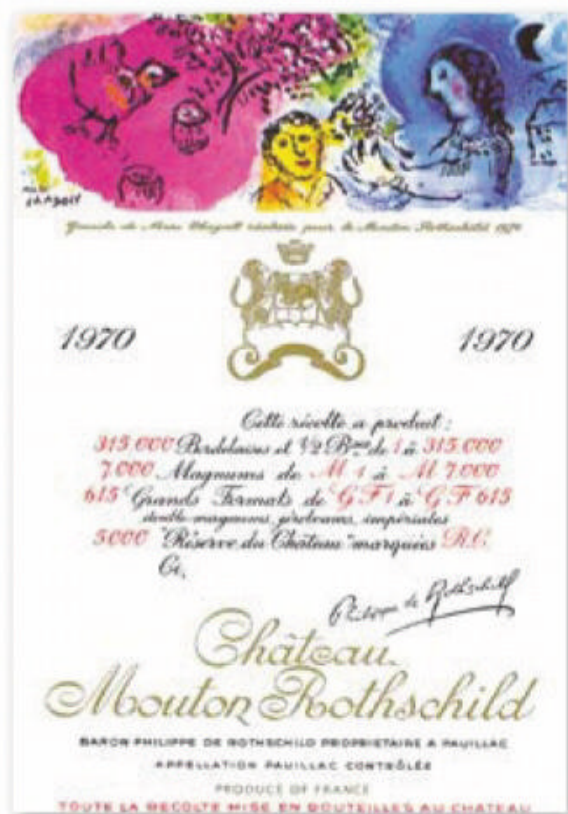 Marc
Chagall
Gouache de Marc Chagall réalisée pour le Mouton Rothschild 1970
1970 1970
Cette récolte a produit :
315.000 Bordelaises et 1/2 Bses de 1 à 315.000
7.000 Magnums de M 1 à M 7.000
615 Grands Formats de G F 1 à G F 615
double magnums, jéroboams, impériales
5.000 "Réserve du Château" marquées R.C.
Ci,
Philippe de Rothschild
Château
Mouton Rothschild
BARON PHILIPPE DE ROTHSCHILD PROPRIETAIRE A PAUILLAC
APPELLATION PAUILLAC CONTRÔLÉE
PRODUCE OF FRANCE
TOUTE LA RÉCOLTE MISE EN BOUTEILLES AU CHÂTEAU